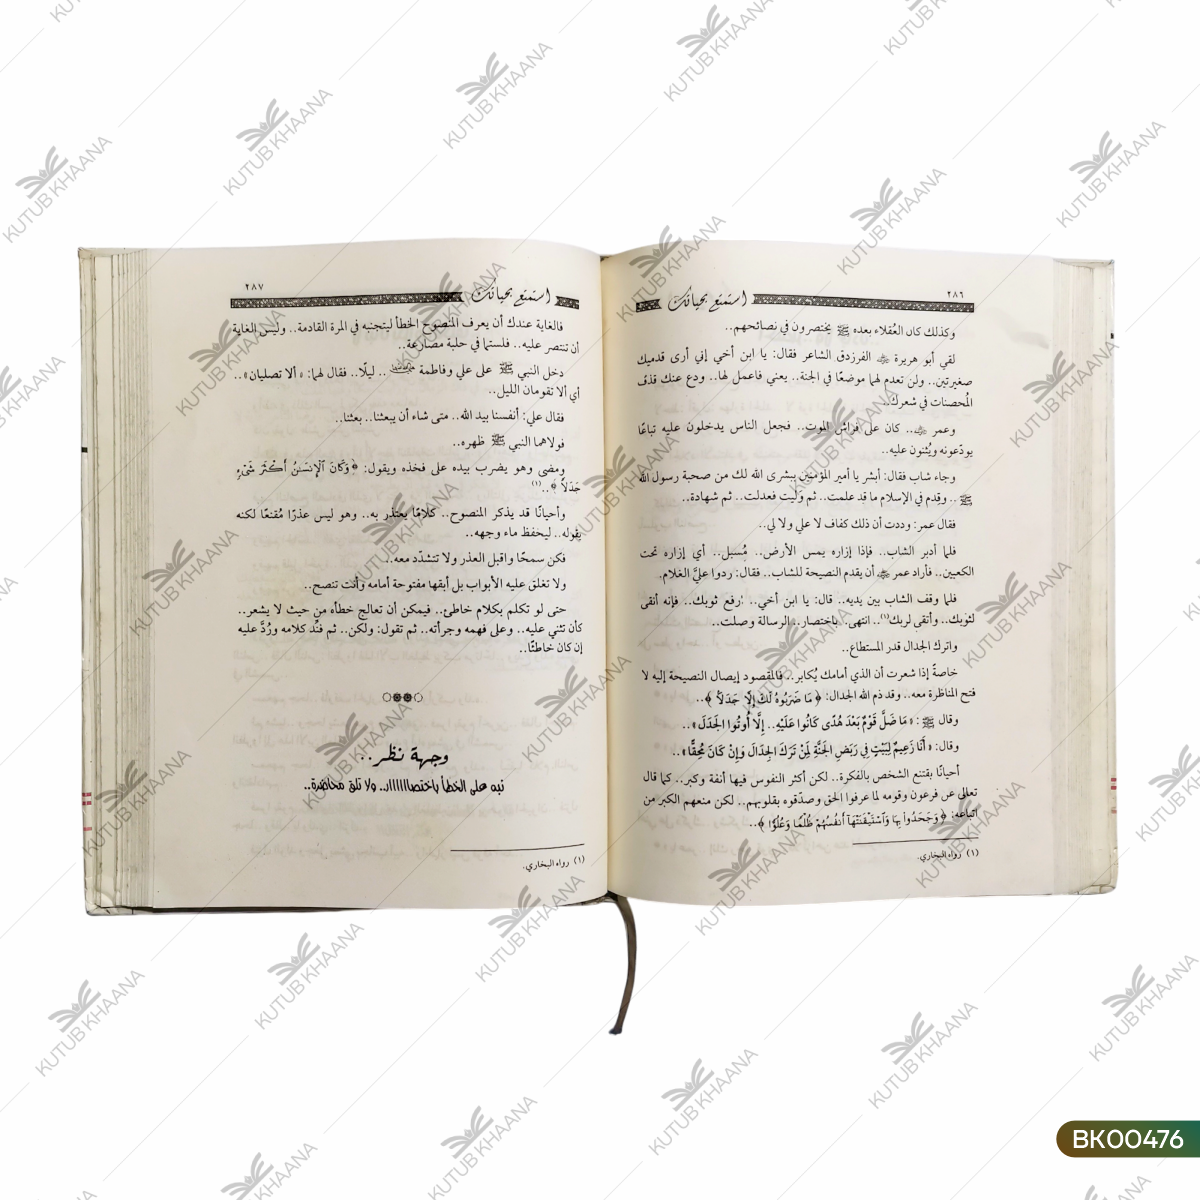 ٢٨٦
استمتع بحياتك
وكذلك كان العُقلاء بعده ﷺ يختصرون في نصائحهم..
لقي أبو هريرة الفرزدق الشاعر فقال: يا ابن أخي إني أرى قدميك
صغيرتين.. ولن تعدم لهما موضعًا في الجنة.. يعني فاعمل لها.. ودع عنك قذف
المُحصنات في شعرك..
وعمر .. كان على فراش الموت.. فجعل الناس يدخلون عليه تباعًا
يودّعونه ويُثنون عليه..
وجاء شاب فقال: أبشر يا أمير المؤمنين ببشرى الله لك من صحبة رسول الله
ﷺ .. وقدم في الإسلام ما قد علمت.. ثم وَليت فعدلت.. ثم شهادة..
فقال عمر: وددت أن ذلك كفاف لا علي ولا لي..
فلما أدبر الشاب.. فإذا إزاره يمس الأرض.. مُسبل.. أي إزاره تحت
الكعبين.. فأراد عمر أن يقدم النصيحة للشاب.. فقال: ردوا عليَّ الغلام.
فلما وقف الشاب بين يديه.. قال: يا ابن أخي.. ارفع ثوبك.. فإنه أنقى
لثوبك.. وأتقى لربك(١).. انتهى. باختصار.. الرسالة وصلت..
واترك الجدال قدر المستطاع..
خاصةً إذا شعرت أن الذي أمامك يُكابر.. فالمقصود إيصال النصيحة إليه لا
فتح المناظرة معه.. وقد ذم الله الجدال: ﴿مَا ضَرَبُوهُ لَكَ إِلَّا جَدَلًا﴾..
وقال ﷺ: «مَا ضَلَّ قَوْمٌ بَعْدَ هُدًى كَانُوا عَلَيْهِ.. إِلَّا أُوتُوا الجَدَلَ»..
وقال: «أَنَا زَعِيمٌ لِبَيْتٍ فِي رَبَضِ الجَنَّةِ لِمَنْ تَرَكَ الجِدَالَ وَإِنْ كَانَ مُحِقًّا»..
أحيانًا يقتنع الشخص بالفكرة.. لكن أكثر النفوس فيها أنفة وكبر.. كما قال
تعالى عن فرعون وقومه لما عرفوا الحق وصدّقوه بقلوبهم.. لكن منعهم الكبر من
اتباعه: ﴿وَجَحَدُوا بِهَا وَاسْتَيْقَنَتْهَا أَنفُسُهُمْ ظُلْمًا وَعُلُوًّا﴾..
(١) رواه البخاري.
٢٨٧
استمتع بحياتك
فالغاية عندك أن يعرف المنصوح الخطأ ليتجنبه في المرة القادمة.. وليس الغاية
أن تنتصر عليه.. فلستما في حلبة مصارعة..
دخل النبي ﷺ على علي وفاطمة .. ليلًا.. فقال لهما: «ألا تصليان»..
أي ألا تقومان الليل..
فقال علي: أنفسنا بيد الله.. متى شاء أن يبعثنا.. بعثنا..
فولاهما النبي ﷺ ظهره..
ومضى وهو يضرب بيده على فخذه ويقول: ﴿وَكَانَ ٱلْإِنسَٰنُ أَكْثَرَ شَىْءٍ
جَدَلًا﴾..(١)
وأحيانًا قد يذكر المنصوح.. كلامًا يعتذر به.. وهو ليس عذرًا مُقنعًا لكنه
يقوله.. ليحفظ ماء وجهه..
فكن سمحًا واقبل العذر ولا تتشدّد معه..
ولا تغلق عليه الأبواب بل أبقها مفتوحة أمامه وأنت تنصح..
حتى لو تكلم بكلام خاطئ.. فيمكن أن تعالج خطأه من حيث لا يشعر..
كأن تثني عليه.. وعلى فهمه وجرأته.. ثم تقول: ولكن.. ثم فنِّد كلامه ورُدَّ عليه
إن كان خاطئًا..
وجهة نظر..
نبه على الخطأ باختصاااااار.. ولا تلق محاضرة..
(١) رواه البخاري.
KUTUB KHAANA
BK00476